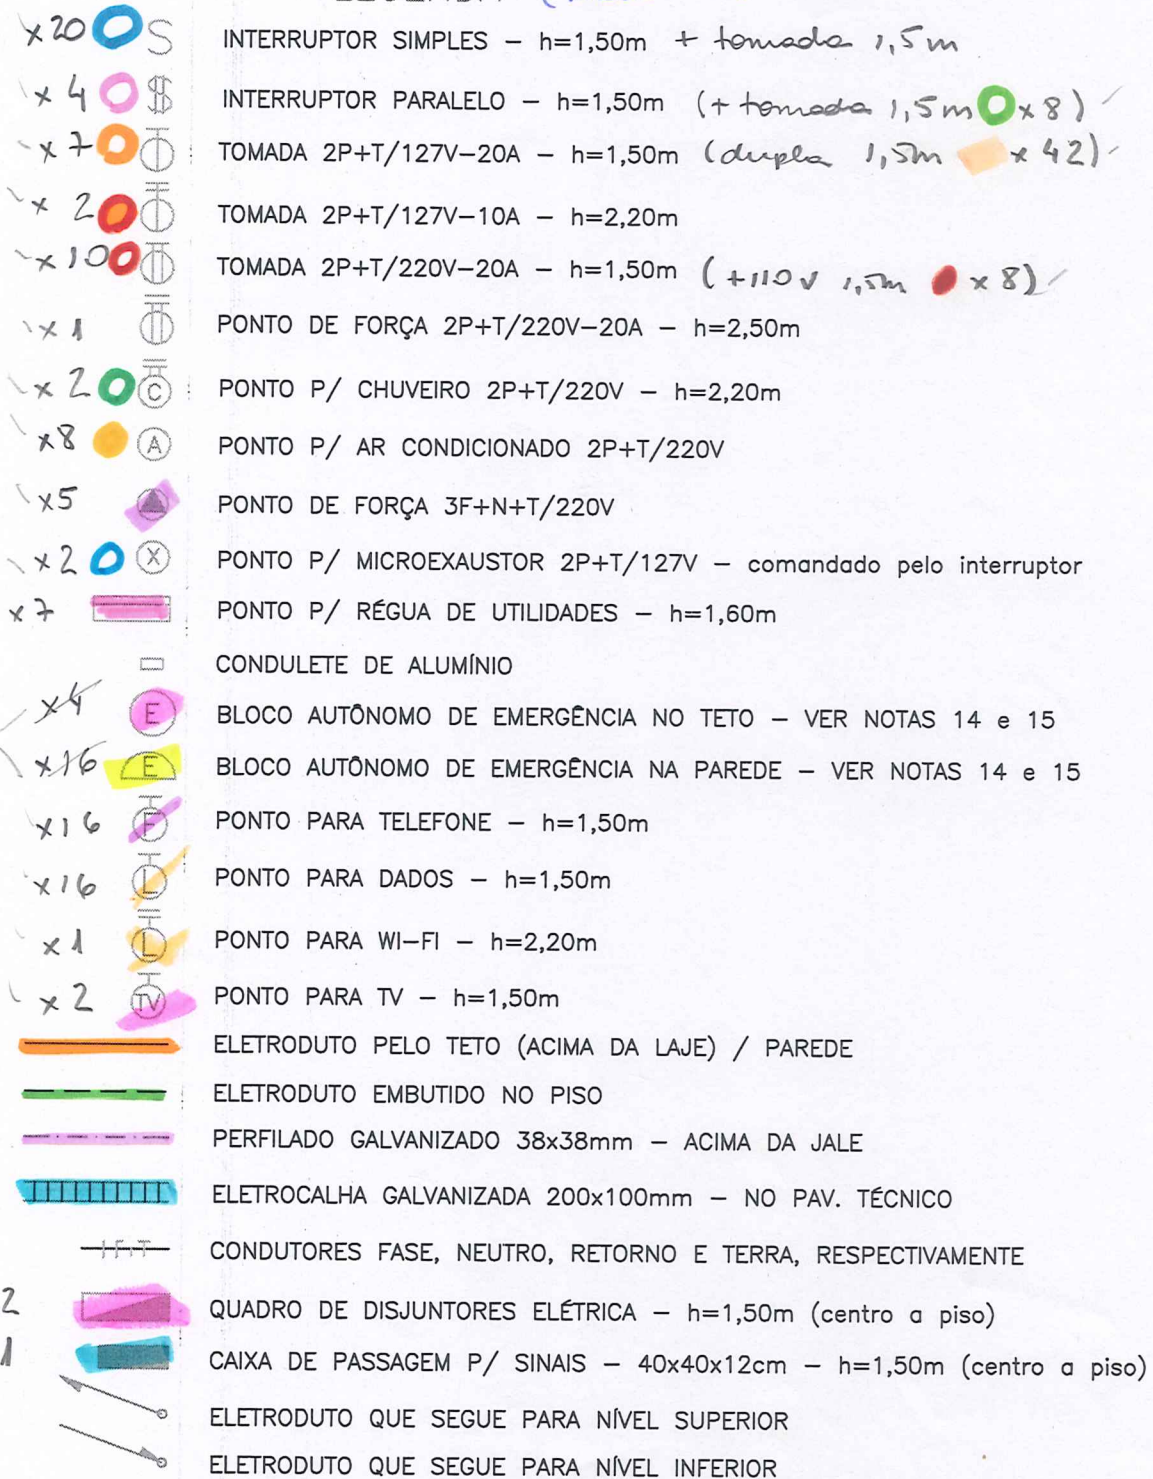 x20 S INTERRUPTOR SIMPLES – h=1,50m + tomada 1,5m
x4 $ INTERRUPTOR PARALELO – h=1,50m (+ tomada 1,5m x8)
x7 TOMADA 2P+T/127V–20A – h=1,50m (dupla 1,5m x42)
x2 TOMADA 2P+T/127V–10A – h=2,20m
x10 TOMADA 2P+T/220V–20A – h=1,50m (+110v 1,5m x8)
x1 PONTO DE FORÇA 2P+T/220V–20A – h=2,50m
x2 C PONTO P/ CHUVEIRO 2P+T/220V – h=2,20m
x8 A PONTO P/ AR CONDICIONADO 2P+T/220V
x5 PONTO DE FORÇA 3F+N+T/220V
x2 X PONTO P/ MICROEXAUSTOR 2P+T/127V – comandado pelo interruptor
x7 PONTO P/ RÉGUA DE UTILIDADES – h=1,60m
CONDULETE DE ALUMÍNIO
x4 E BLOCO AUTÔNOMO DE EMERGÊNCIA NO TETO – VER NOTAS 14 e 15
x16 E BLOCO AUTÔNOMO DE EMERGÊNCIA NA PAREDE – VER NOTAS 14 e 15
x16 F PONTO PARA TELEFONE – h=1,50m
x16 L PONTO PARA DADOS – h=1,50m
x1 L PONTO PARA WI–FI – h=2,20m
x2 TV PONTO PARA TV – h=1,50m
ELETRODUTO PELO TETO (ACIMA DA LAJE) / PAREDE
ELETRODUTO EMBUTIDO NO PISO
PERFILADO GALVANIZADO 38x38mm – ACIMA DA JALE
ELETROCALHA GALVANIZADA 200x100mm – NO PAV. TÉCNICO
CONDUTORES FASE, NEUTRO, RETORNO E TERRA, RESPECTIVAMENTE
2 QUADRO DE DISJUNTORES ELÉTRICA – h=1,50m (centro a piso)
1 CAIXA DE PASSAGEM P/ SINAIS – 40x40x12cm – h=1,50m (centro a piso)
ELETRODUTO QUE SEGUE PARA NÍVEL SUPERIOR
ELETRODUTO QUE SEGUE PARA NÍVEL INFERIOR